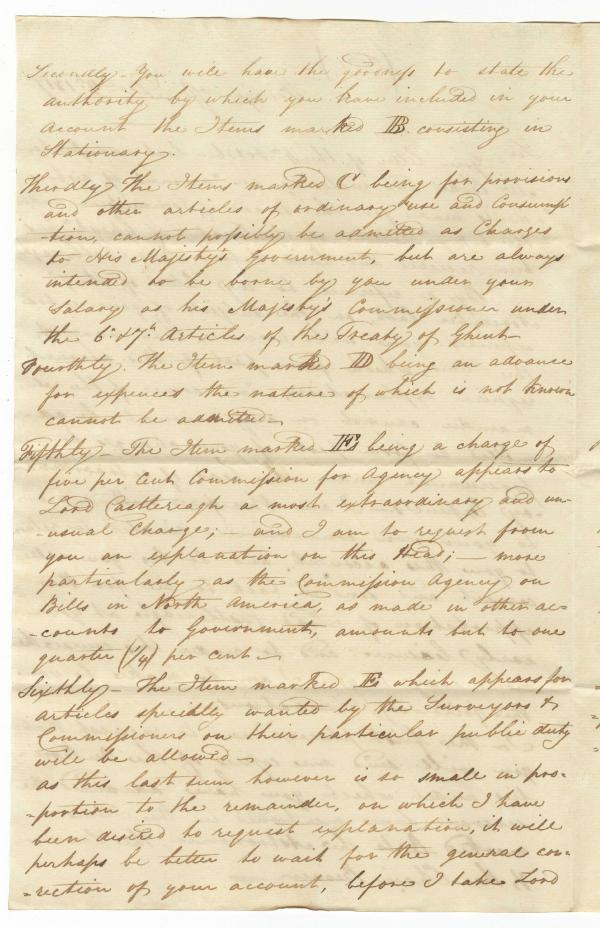 Secondly – You will have the goodness to state the
authority by which you have included in your
account the Items marked B. consisting in
Stationary.
Therdly The Items marked C being for provisions
and other articles of ordinary use and Consump
-tion, cannot possibly be admitted as Charges
to His Majesty's Government, but are always
intended to be borne by you under your
Salary as his Majesty's Commissioner under
the 6th & 7th Articles of the Treaty of Ghent –
Fourthly. The Item marked D being an advance
for expences the nature of which is not known
cannot be admitted –
Fifthly – The Item marked E, being a charge of
five per Cent Commission for Agency appears to
Lord Castlereagh a most extraordinary and un-
-usual Charge; – and I am to request from
you an explanation on this Head; – more
particularly as the Commission Agency on
Bills in North America, as made in other ac-
-counts to Government, amounts but to one
quarter (1/4) per cent –
Sixthly – The Item marked F, which appears for
articles specially wanted by the Surveyors &
Commissioners on their particular public duty
will be allowed –
as this last sum however is so small in pro-
-portion to the remainder, on which I have
been desired to request explanation, it will
perhaps be better to wait for the general cor-
-rection of your account, before I take Lord